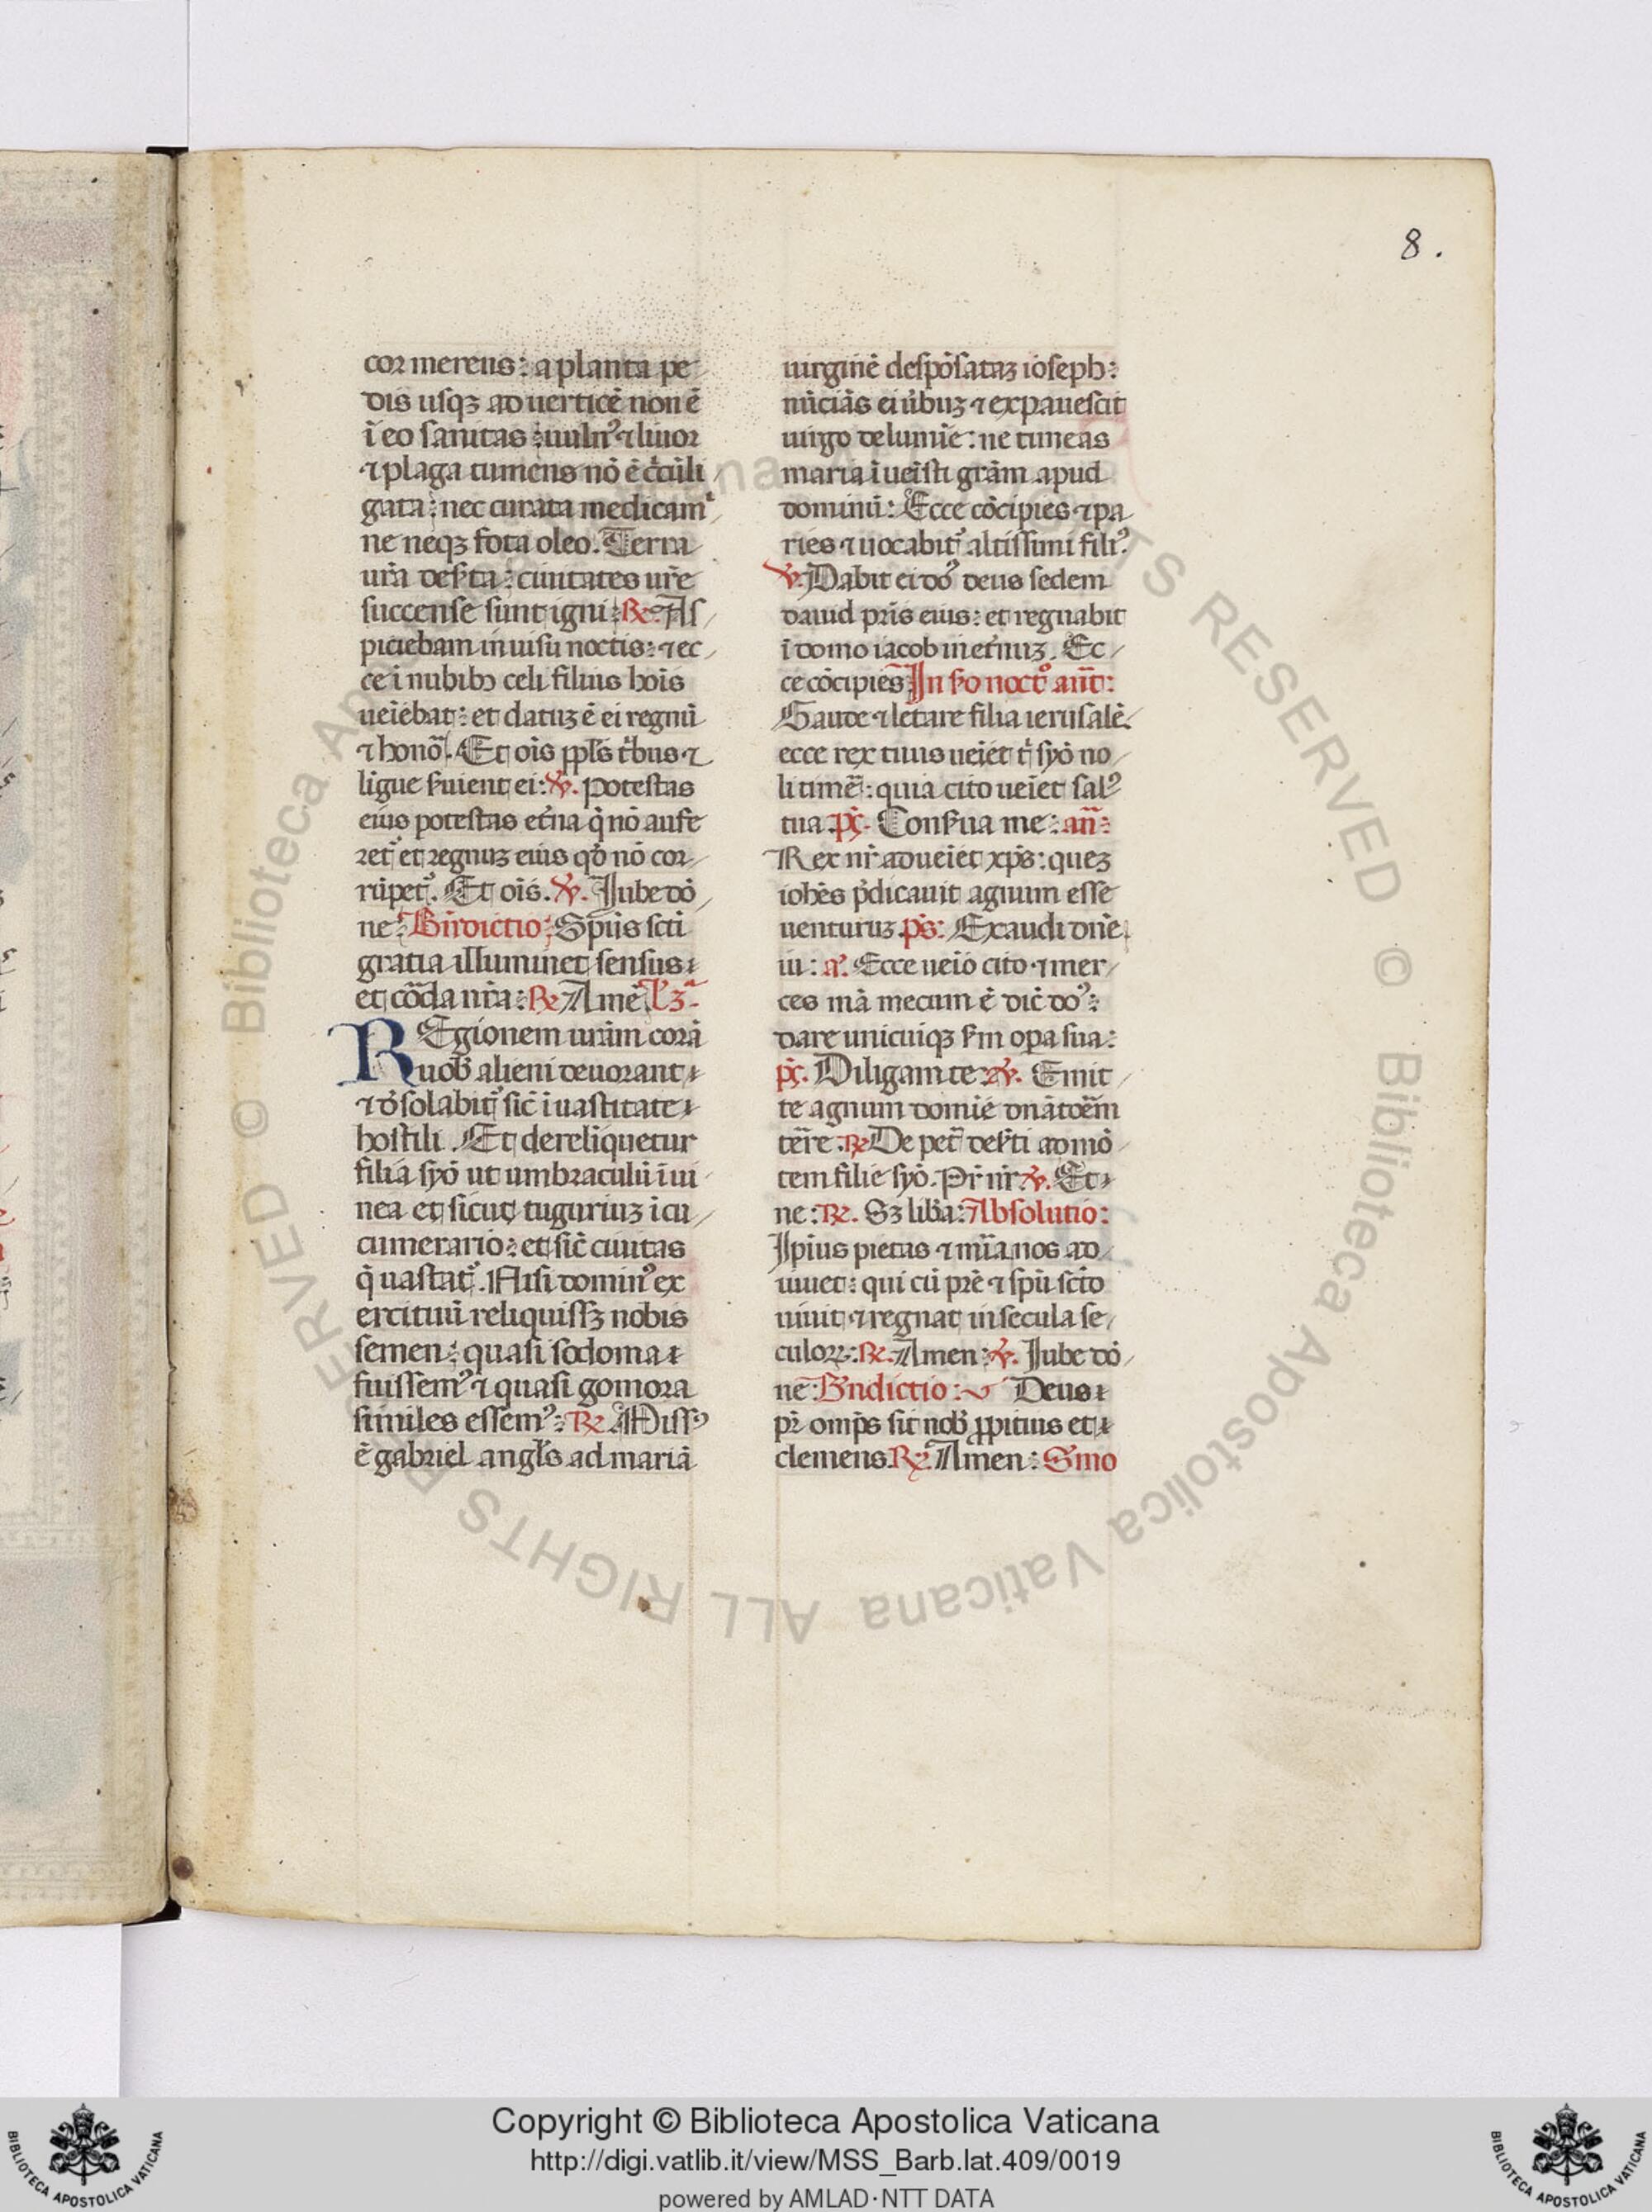 8.
cor merens: a planta pe
dis usqꝫ ad uerticē non ē
ī eo sanitas: uulnꝰ ⁊ liuor
⁊ plaga tumens nō ē
gata: nec curata medicam
ne neqꝫ fota oleo. Terra
ur̄a desꝭta: ciuitates ur̄e
succense sunt igni: ℞. As
piciebam in uisu noctis: ⁊ ec
ce ī nubibꝫ celi filius hoīs
ueiēbat: et datuꝫ ē ei regnū
⁊ honō. Et oīs ppl̄s t'bus ⁊
līgue ẜuient ei: ℣. Potestas
eius potestas et̄na q̄ nō aufe
ret᷑ et regnuꝫ eius qđ nō cor
rūpet᷑. Et oīs. ℣. Iube dō
ne: Bn̄dictio: Sp̄us sc̄ti
gratia illuminet sensus
et cōda nr̄a: ℞ Amē
REgionem ur̄am corā
uob̄ alieni deuorant
⁊ dꝭsolabit᷑ sic̄ ī uastitate
hostili. Et derelīquetur
filia syō ut umbraculū ī ui
nea et sicut tuguriuꝫ ī cu
cumerario: et sic̄ ciuitas
q̄ uastat᷑. Nisi dominꝰ ex
ercituū reliquissꝫ nobis
semen: quasi sodoma
fuissemꝰ ⁊ quasi gomora
similes essemꝰ: ℞ Missꝰ
ē gabriel angl̄s ad mariā
uirginē despōsataꝫ ioseph:
nūciās ei ūbuꝫ ⁊ expauescit
uirgo de lumīe: ne timeas
maria īueīsti gr̄am apud
dominū: Ecce cōcipies ⁊ pa
ries ⁊ uocabit᷑ altissimi filiꝰ
℣. Dabit ei dōꝰ deus sedem
dauid pr̄is eius: et regnabit
ī domo iacob in et̄nuꝫ. Ec
ce cōcipies In ẜo noct᷑ᵒ an̄t:
Gaude ⁊ letare filia ierusalē
ecce rex tuus ueiēt t' syō no
li timē: quia cito ueiēt salꝰ
tua pꝭ. Conẜua me: an̄:
Rex nr̄ adueiēt xp̄s: queꝫ
ioh̄es p̄dicauit agnum esse
uenturuꝫ ps̄: Exaudi dn̄e
iii: a. Ecce ueīo cito ⁊ mer
ces mā mecum ē dic̄ dōꝰ:
dare unicuiqꝫ ẜm oꝑa sua:
pꝭ. Diligam te: ℣. Emit
te agnum domīe dn̄atoēm
ter̄e: ℞ De pet̄ desꝭti ad mō
tem filie syō. Pr̄ nr̄ ℣. Et
ne: ℞. Sꝫ lib̄a: Absolutio:
Ip̄ius pietas ⁊ mīa nos ad
iuuet: qui cū pr̄e ⁊ sp̄u sc̄to
uiuit ⁊ regnat in secula se
culoꝝ: ℞. Amen: ℣. Iube dō
ne: Bn̄dictio: Deus
pr̄ omp̄s sit nob̄ ꝓpitius et
clemens ℞ Amen: Smo
© Biblioteca Apostolica Vaticana ALL RIGHTS RESERVED
Copyright © Biblioteca Apostolica Vaticana
http://digi.vatlib.it/view/MSS_Barb.lat.409/0019
powered by AMLAD·NTT DATA
BIBLIOTECA APOSTOLICA VATICANA
BIBLIOTECA APOSTOLICA VATICANA